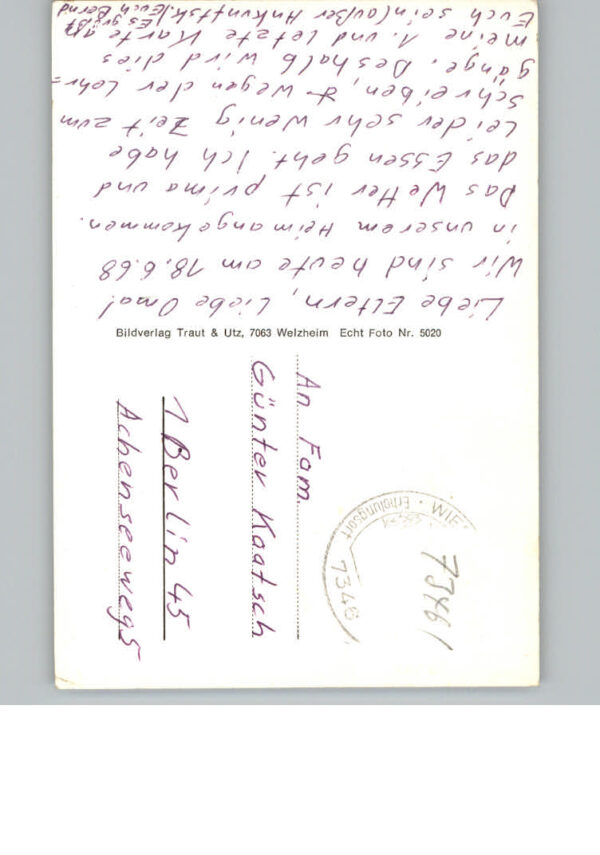 Liebe Eltern, Liebe Oma!
Wir sind heute am 18.6.68
in unserem Heim angekommen.
Das Wetter ist prima und
das Essen geht. Ich habe
Leider sehr wenig Zeit zum
Schreiben, wegen der Lehr-
gänge. Deshalb wird dies
meine 1. und letzte Karte an
Euch sein (außer Ankunftsk.)
Es grüßt
Euch Bernd
Bildverlag Traut & Utz, 7063 Welzheim Echt Foto Nr. 5020
An Fam.
Günter Kaatsch
1 Berlin 45
Achenseeweg 5
7346
Erholungsort
7346